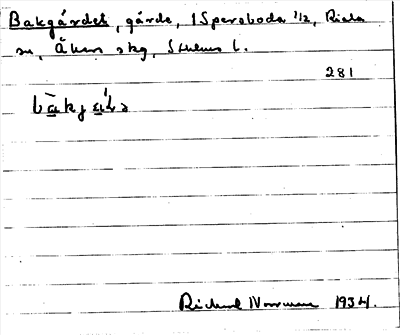 Bakgärdet, gärde, 1 Speroboda 1/2, Riala
sn, Åkers skg, Sthlms l.
281
Richard Norrman 1934.